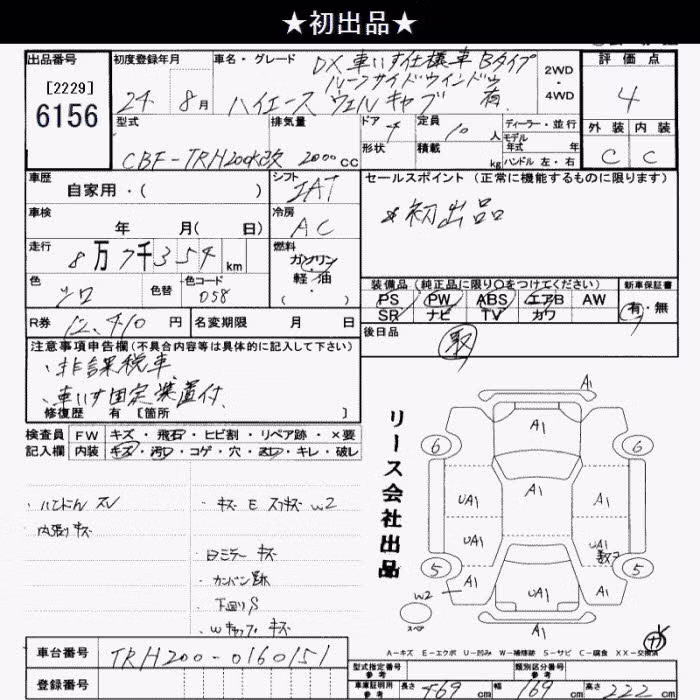 ★初出品★
出品番号
[2229]
6156
初度登録年月
24年 8月
車名・グレード
DX 車いす仕様車 Bタイプ
ルーフサイドウインドウ
ハイエース ウェルキャブ 有
2WD
・
4WD
評価点
4
型式
CBF-TRH200K改
排気量
2000cc
ドア 4
形状
定員 10人
積載 kg
ディーラー・並行
モデル
年式 年
ハンドル 左・右
外装 内装
C C
車歴
自家用・( )
シフト
IAT
セールスポイント (正常に機能するものに限ります)
*初出品
車検
年 月( 日)
冷房
AC
走行
8万7千354km
燃料
ガソリン
軽・油
・
( )
色
シロ
色替
色コード
058
装備品(純正品に限り○をつけてください)
新車保証書
PS PW ABS エアB AW
SR ナビ TV カワ
有・無
R券 12,410円
名変期限 月 日
後日品
取
注意事項申告欄(不具合内容等は具体的に記入して下さい)
・非課税車
・車いす固定装置付
修復歴 有 [箇所 ]
検査員 FW キズ・飛石・ヒビ割・リペア跡・×要
記入欄 内装 キズ・汚レ・コゲ・穴・スレ・キレ・破レ
・ハンドル スレ
・内張りキズ
・キズ E スリキズ W2
・ミラー キズ
・カンバン跡
・下回りS
・Wキャップ キズ
リース会社出品
A1
A1
6 6
A1
UA1 A1
UA1 UA1
5 5
W2 A1 UA1 A1
スペア
A1
A-キズ E-エクボ U-凹み W-補修跡 S-サビ C-腐食 XX-交換済
車台番号 TRH200-0160151
登録番号
型式指定番号
参考
類別区分番号
参考
車庫証明用
参考
長さ 469cm 幅 169cm 高さ 222cm